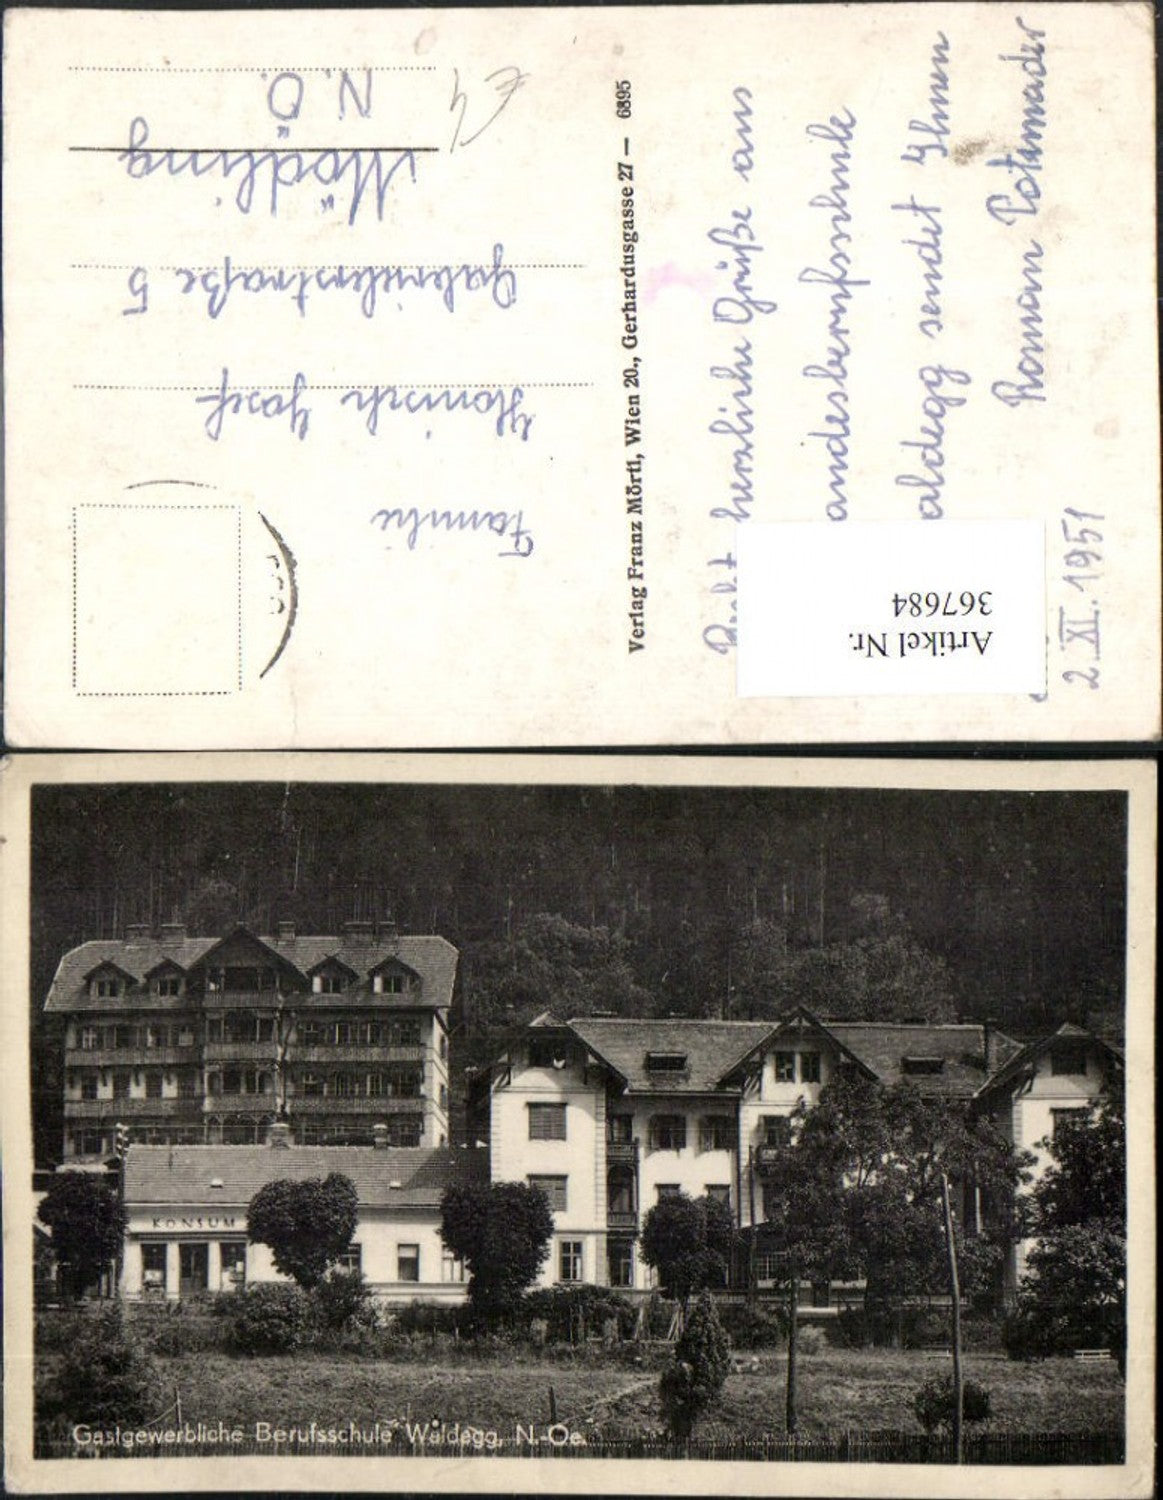 Familie
Hornisch Josef
Gabrielerstraße 5
Mödling
N.Ö.
€ 4
Verlag Franz Mörtl, Wien 20., Gerhardusgasse 27 — 6895
Recht herzliche Grüße aus
andesberufsschule
aldegg sendet Ihnen
Roman
2.XI.1951
Artikel Nr.
367684
KONSUM
Gastgewerbliche Berufsschule Waldegg, N.-Oe.